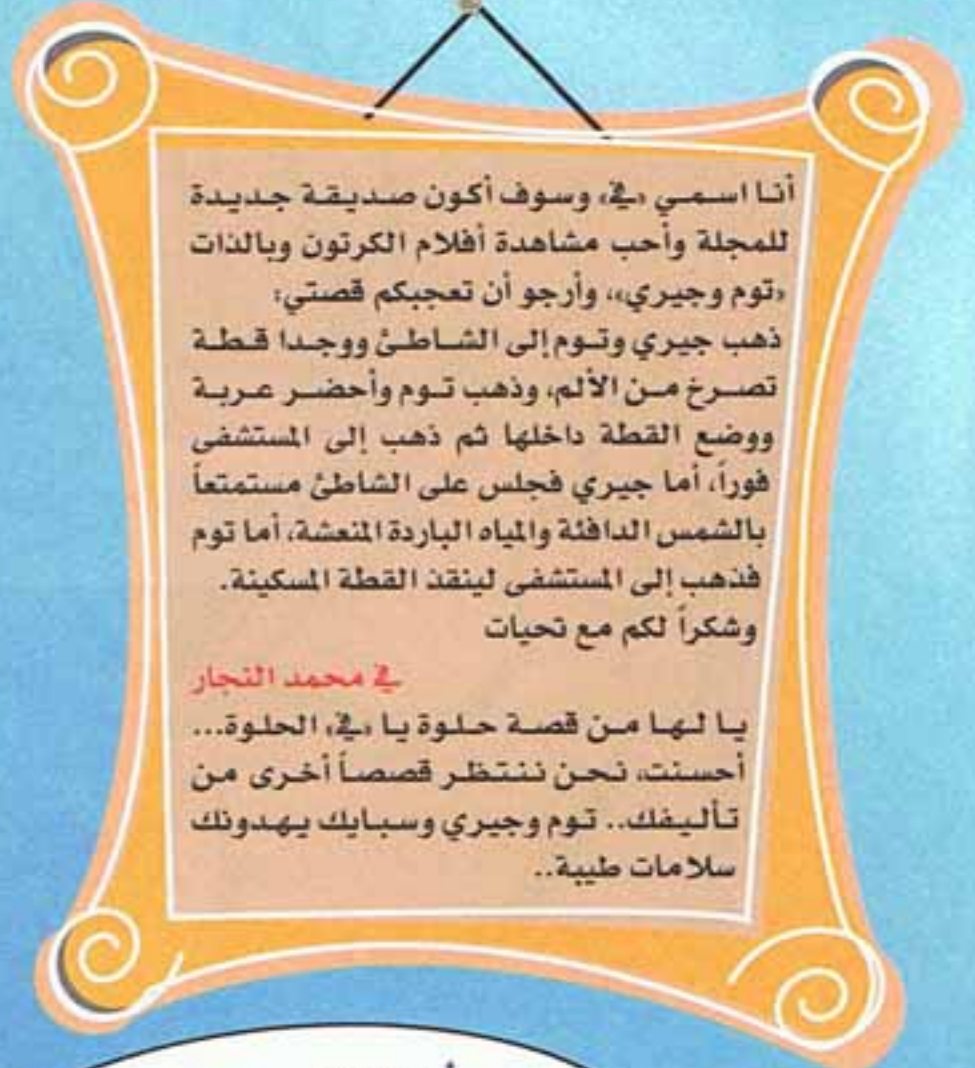 أنا اسمي «في» وسوف أكون صديقة جديدة
للمجلة وأحب مشاهدة أفلام الكرتون وبالذات
«توم وجيري»، وأرجو أن تعجبكم قصتي:
ذهب جيري وتوم إلى الشاطئ ووجدا قطة
تصرخ من الألم، وذهب توم وأحضر عربة
ووضع القطة داخلها ثم ذهب إلى المستشفى
فوراً، أما جيري فجلس على الشاطئ مستمتعاً
بالشمس الدافئة والمياه الباردة المنعشة، أما توم
فذهب إلى المستشفى لينقذ القطة المسكينة.
وشكراً لكم مع تحيات
في محمد النجار
يا لها من قصة حلوة يا «في» الحلوة...
أحسنت، نحن ننتظر قصصاً أخرى من
تأليفك.. توم وجيري وسبايك يهدونك
سلامات طيبة..